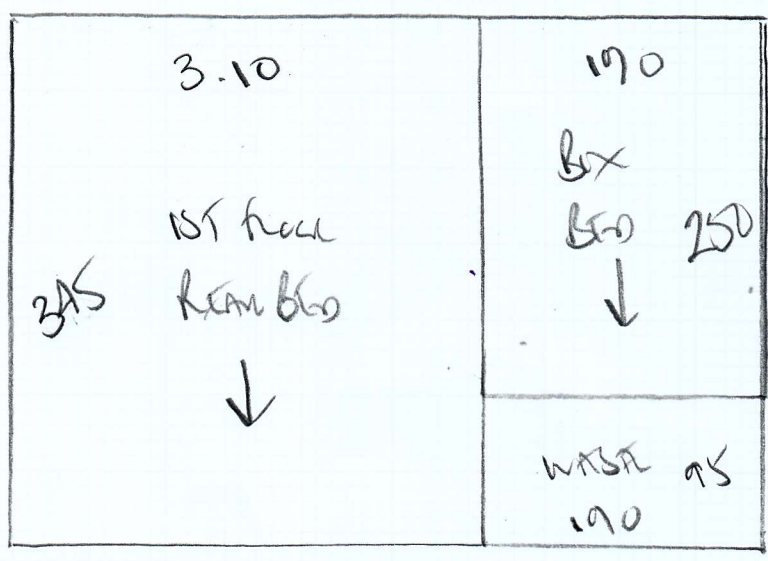 3.10
1ST FLOOR
345 REAR BED
190
BOX
BED 250
WASTE 95
190